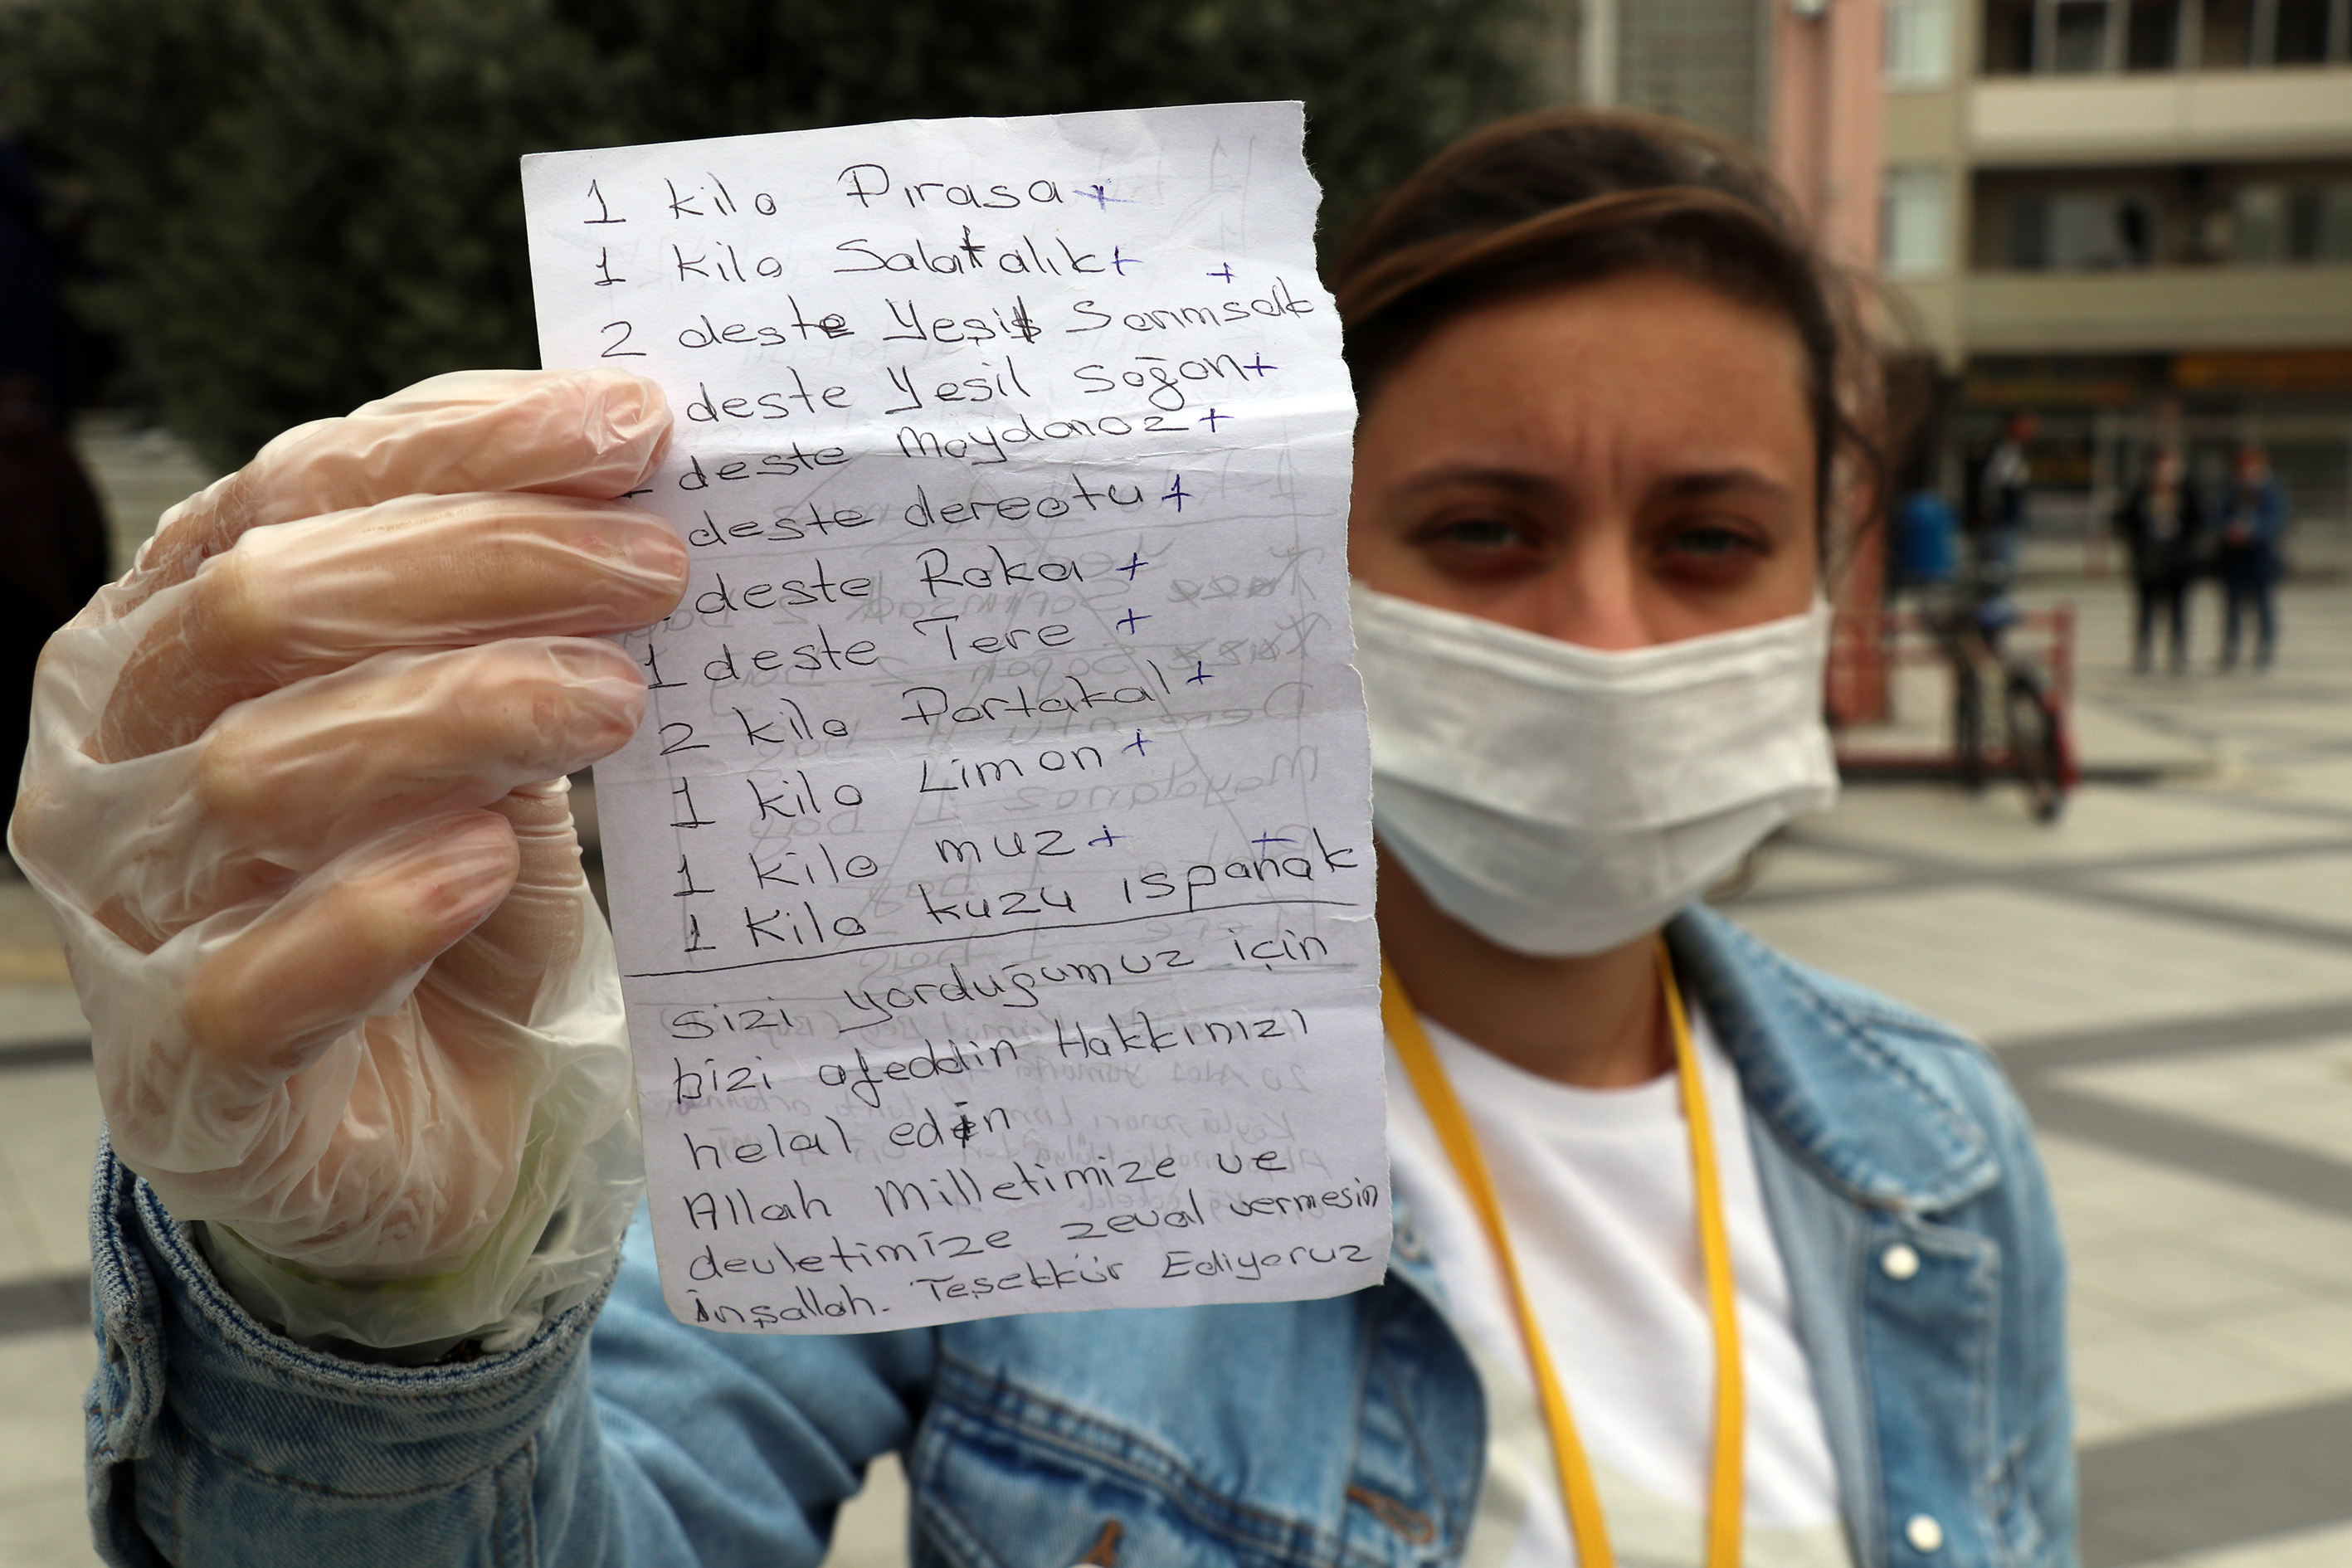 1 kilo Pırasa +
1 kilo Salatalık +
2 deste Yeşil Sarımsak +
deste Yeşil Soğan +
deste Maydanoz +
deste dereotu +
deste Roka +
1 deste Tere +
2 kilo Portakal +
1 kilo Limon +
1 kilo muz +
1 kilo kuzu ıspanak +
sizi yorduğumuz için
bizi afeddin Hakkınızı
helal edin
Allah Milletimize ve
devletimize zeval vermesin
inşallah. Teşekkür Ediyoruz